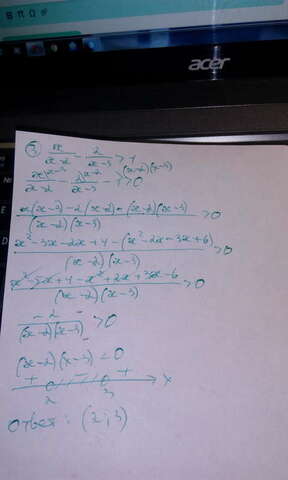 acer
③ x/(x-2) - 2/(x-3) > 1
x^(x-3)/(x-2) - 2^(x-2)/(x-3) - 1^((x-2)(x-3)) > 0
(x(x-3) - 2(x-2) - (x-2)(x-3))/((x-2)(x-3)) > 0
(x² - 3x - 2x + 4 - (x² - 2x - 3x + 6))/((x-2)(x-3)) > 0
(x² - 5x + 4 - x² + 2x + 3x - 6)/((x-2)(x-3)) > 0
-2/((x-2)(x-3)) > 0
(x-2)(x-3) = 0
+ - + x
2 3
Ответ: (2;3)